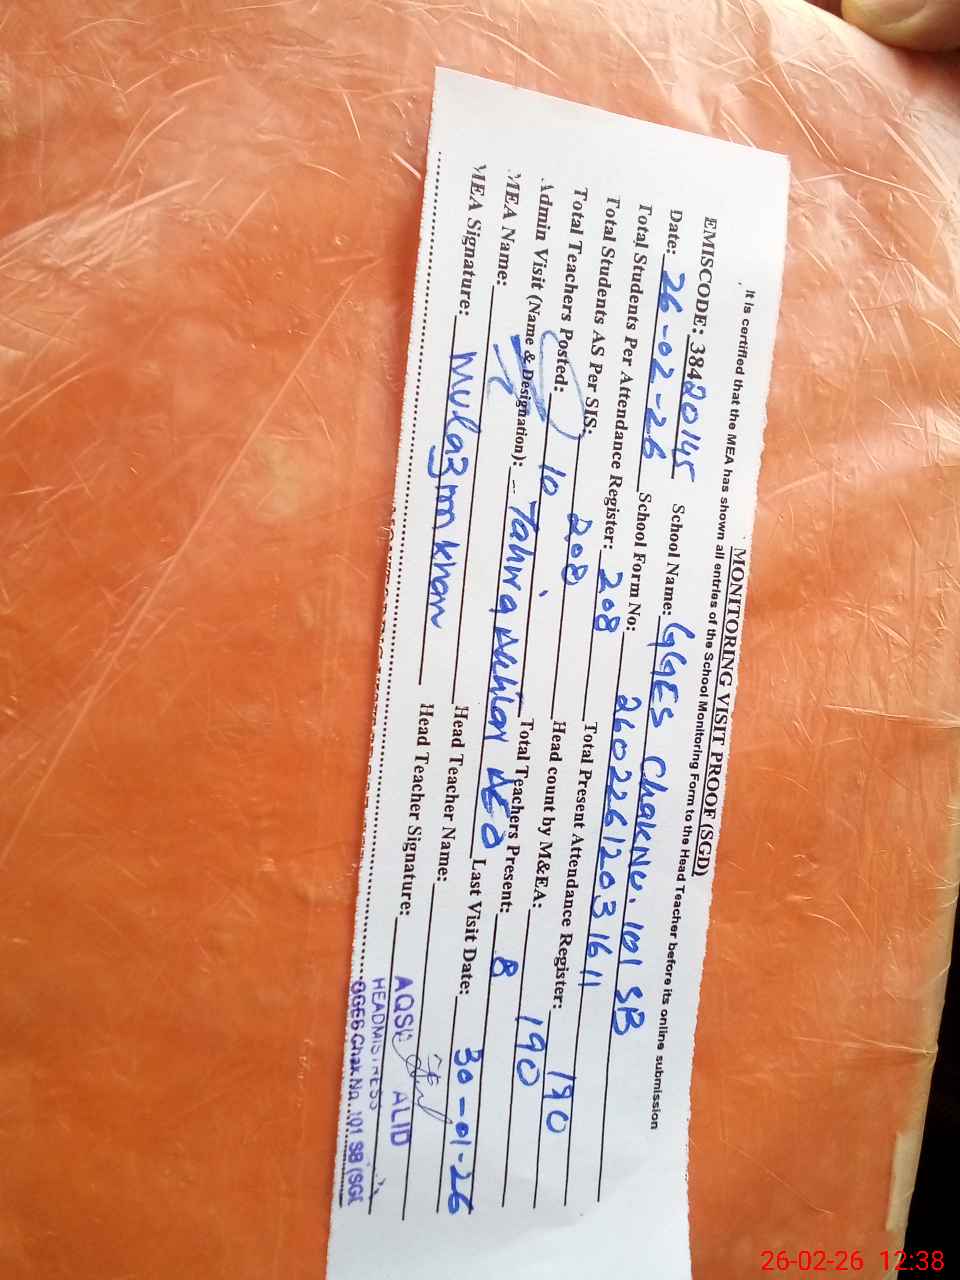 MONITORING VISIT PROOF (SGD)
It is certified that the MEA has shown all entries of the School Monitoring Form to the Head Teacher before its online submission
EMISCODE: 38420145 School Name: GGES Chak No. 101 SB
Date: 26-02-26 School Form No: 26022612031611
Total Students Per Attendance Register: 208 Total Present Attendance Register: 190
Total Students AS Per SIS: 208 Head count by M&EA: 190
Total Teachers Posted: 10 Total Teachers Present: 8
Admin Visit (Name & Designation): Tahira AEO Last Visit Date: 30-01-26
MEA Name: Head Teacher Name:
MEA Signature: Mulazim Khan Head Teacher Signature:
AQSA
HEADMISTRESS
GGES Chak No. 101 SB (SGD
26-02-26 12:38